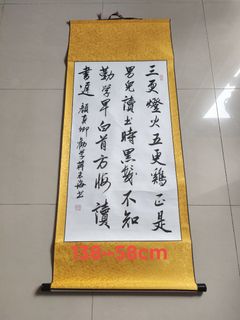 三更燈火五更鷄正是
男兒讀书時黑髮不知
勤学早白首方悔讀
書遲 顏真卿勸学
138-58cm